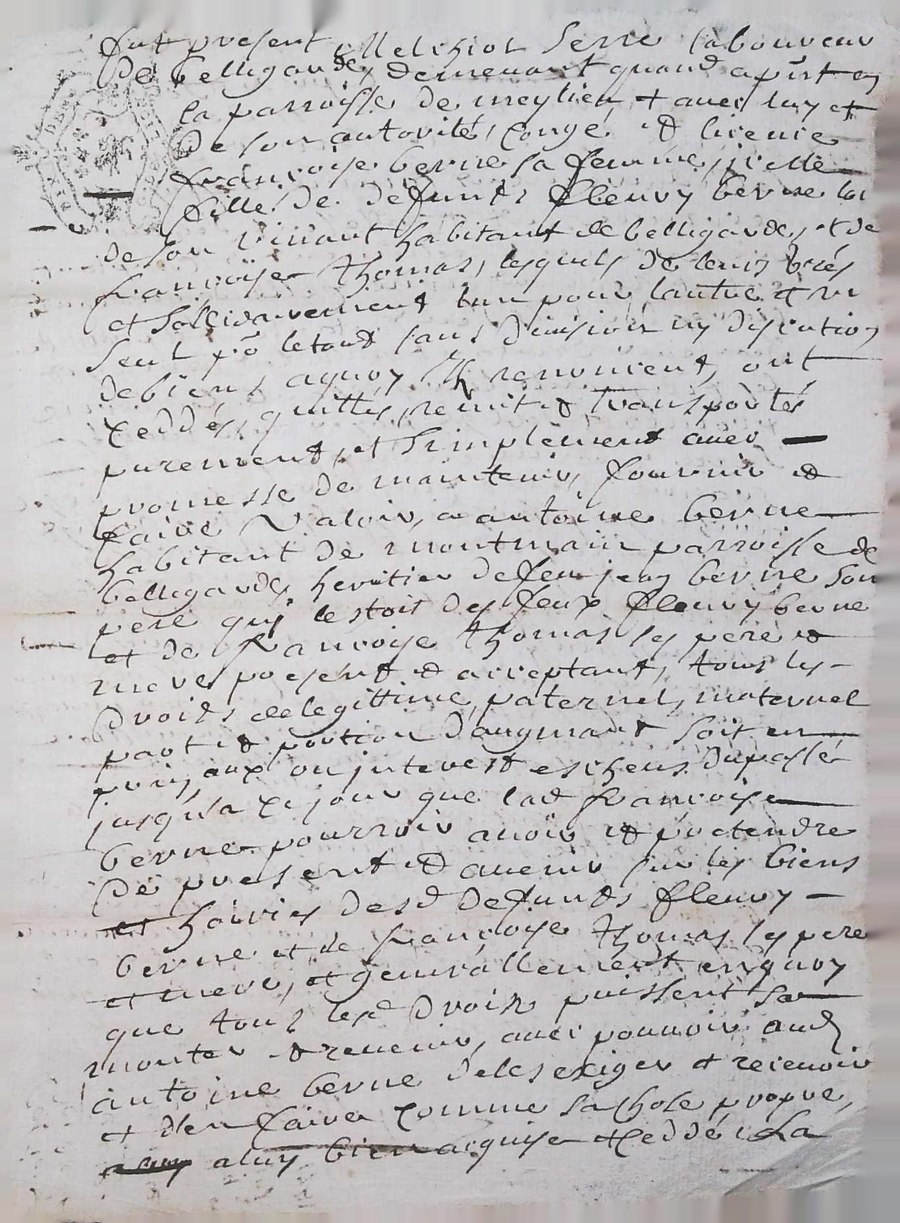 fut present Melchiol Serre laboureur
De belligarde, demeurant quand a pnt en
la parroisse de meylieu et avec luy et
De son autorité, congé, et licence
françoise berne sa femme, icelle
fille de deffunts fleury berne lui
de son vivant habitant de belligarde, et de
françoise thomas, lesquels de leurs grés
et sollidairement lun pour lautre et un
seul po le tout sans division ny discution
de biens, aquoy ils renoncent, ont
ceddés, quittés, remit et transportés
purement, et simplement avec
promesse de maintenir, fournir et
faire valoir, a antoine berne
habitant de montmain parroisse de
belligarde, heritier de feu jean berne son
pere qui lestoit des feux fleury berne
et de françoise thomas ses pere et
mere present et acceptant, tous les
droits de legittime paternel, maternel
part et portion daugmant soit en
principaux ou interest escheus du passé
jusqua ce jour que lad françoise
berne pourroit avoir et pretendre
De present et avenir sur les biens
et hoiries desd deffunts fleury
berne et de françoise thomas ses pere
et mere, et generallement en quoy
que tous lesd Droits puissent se
monter et revenir, avec pouvoir aud
antoine berne de les exiger et recevoir
et den faire comme sa chose propre,
a luy bien acquise et ceddée La